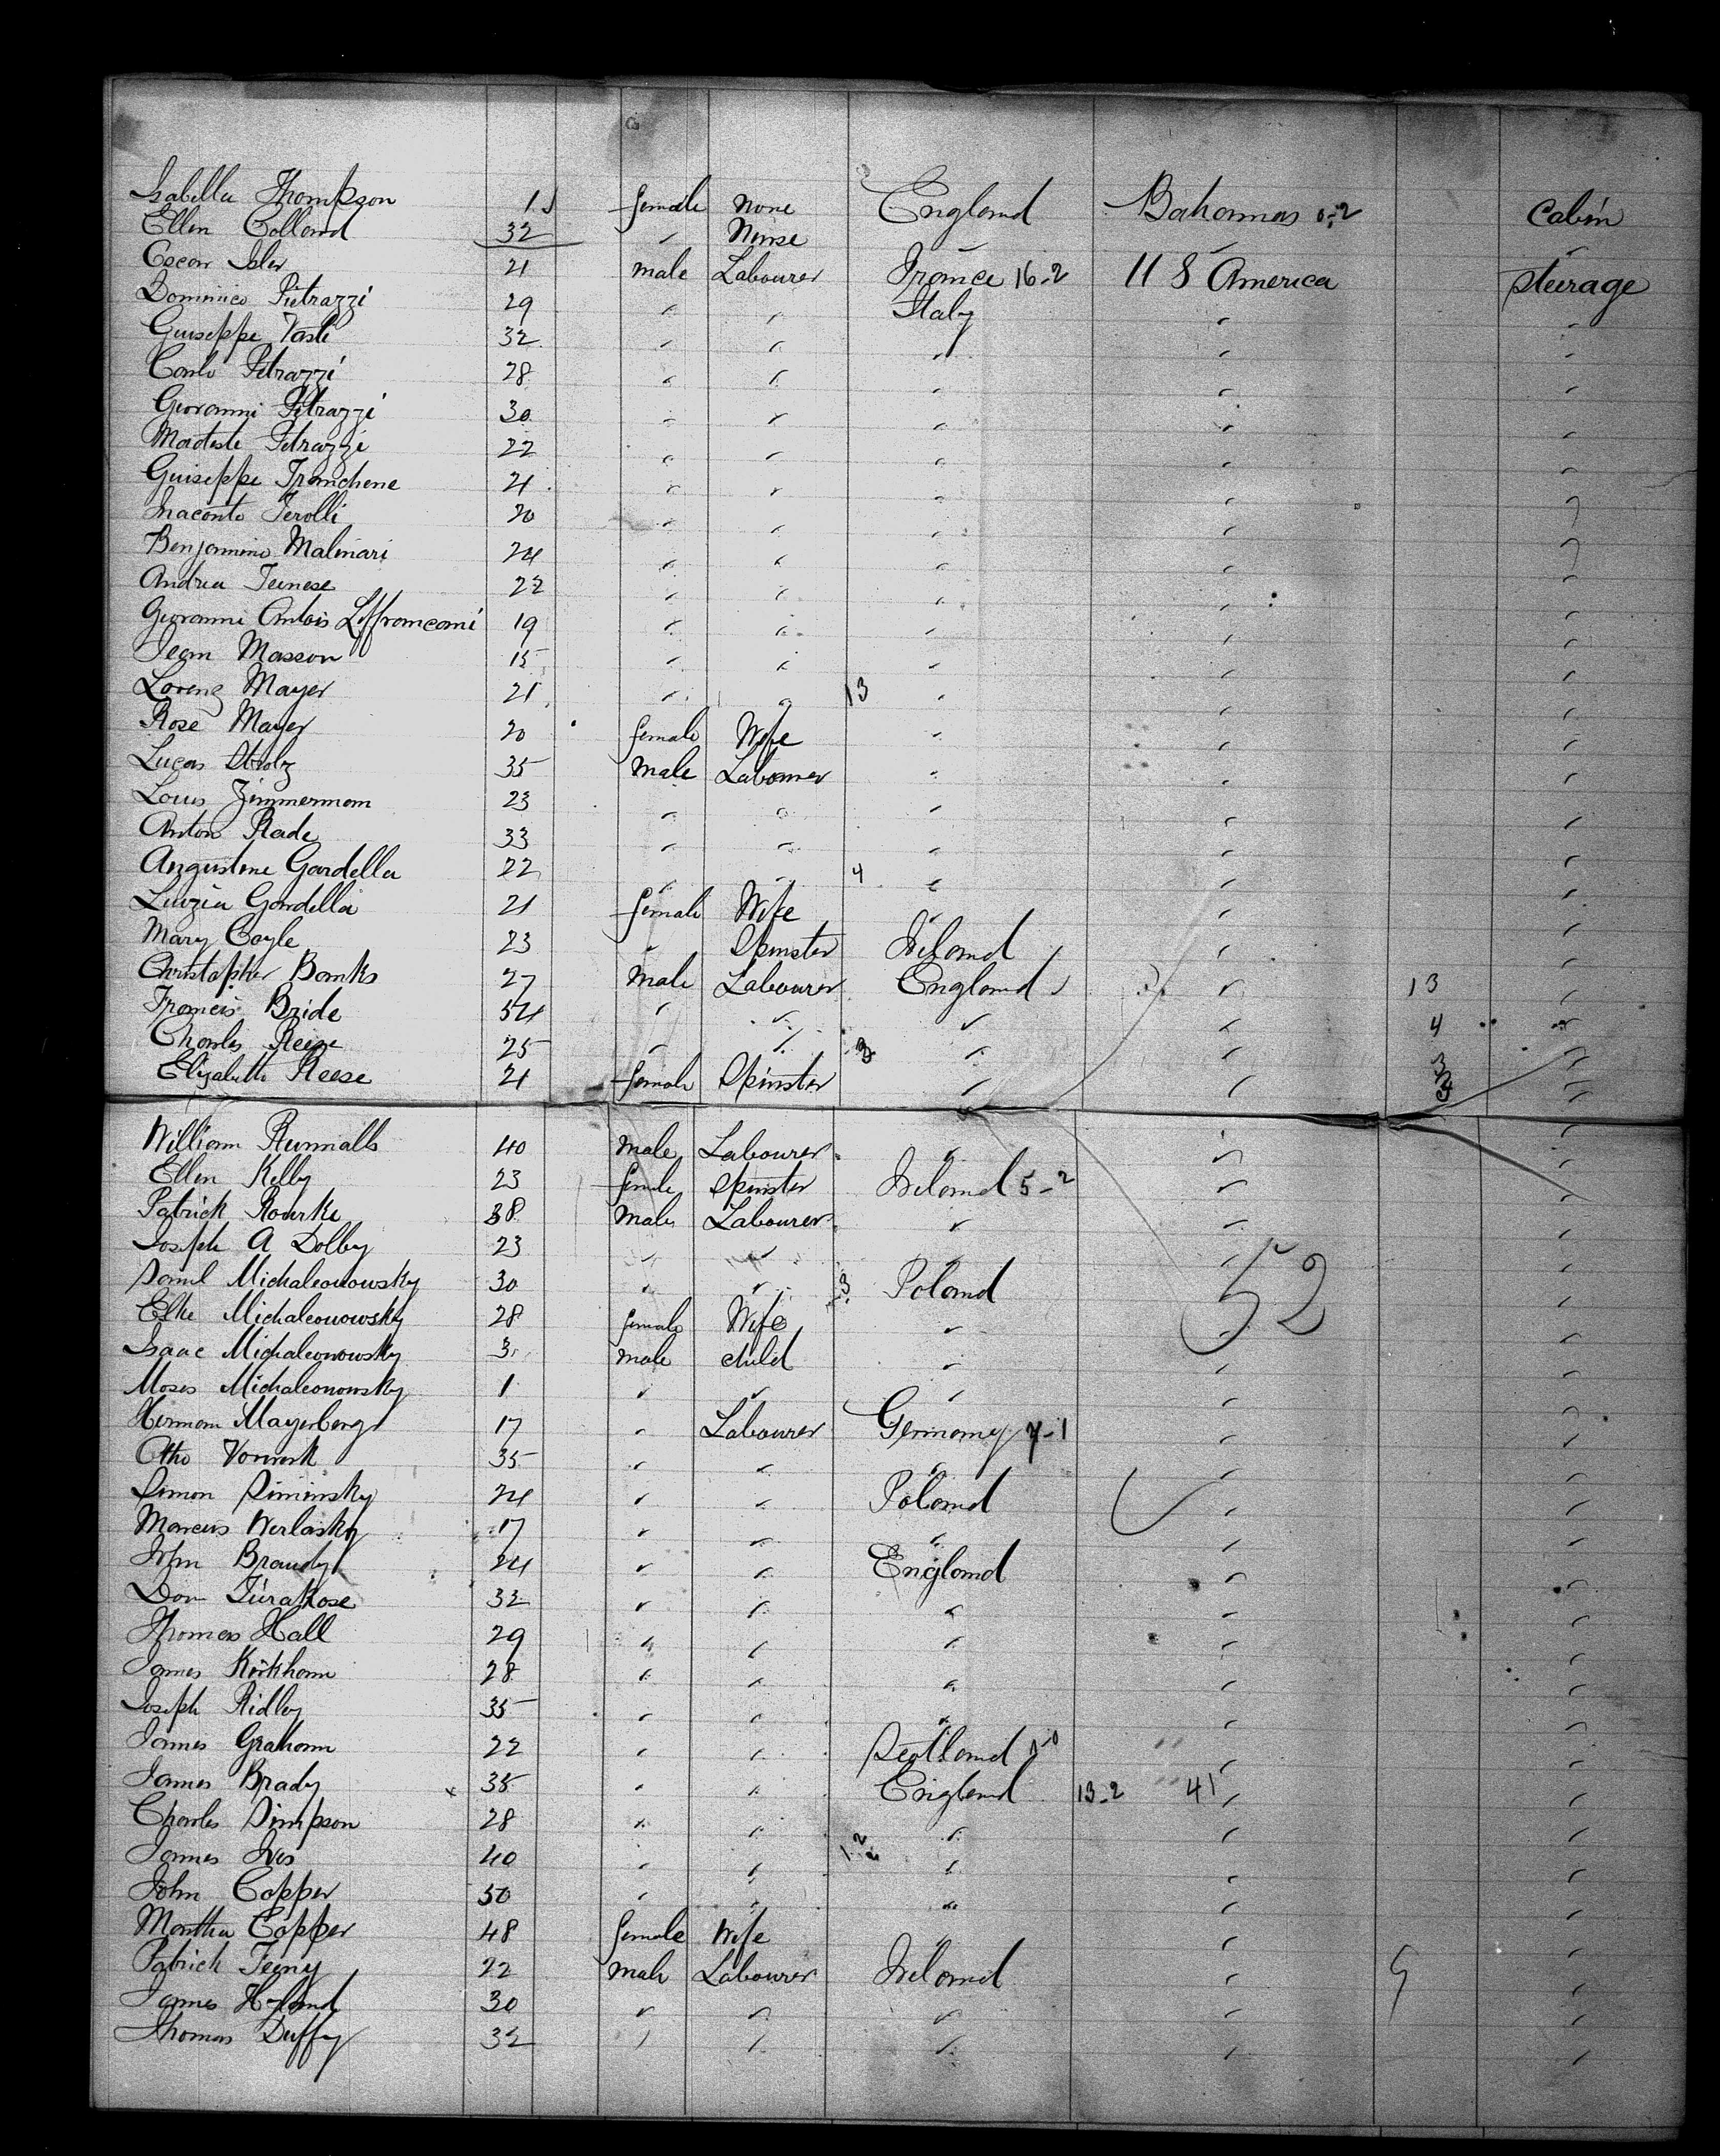 Isabella Thompson 1 female None England Bahamas 0-2 Cabin
Ellen Colland 32 " Nurse " " "
Oscar Isler 21 male Labourer France 16-2 U S America Steerage
Dominico Pietrazzi 29 " " Italy " "
Guiseppe Vasti 32 " " " " "
Carlo Petrazzi 28 " " " " "
Giovanni Petrazzi 30 " " " " "
Modeste Petrazzi 22 " " " " "
Guiseppe Franchene 21 " " " " "
Ferolli 20 " " " " "
Benjamino Malinari 24 " " " " "
Andrea 22 " " " " "
Giovanni Antois 19 " " " " "
Jean Masson 15 " " " " "
Lorenz Mayer 21 " " 13 " " "
Rose Mayer 20 female Wife " " "
Lucas 35 Male Labourer " " "
Louis Zimmerman 23 " " " " "
Anton Rade 33 " " " " "
Augustine Gardella 22 " " 4 " " "
Luizia Gardella 21 female Wife " " "
Mary Coyle 23 " Spinster Ireland " "
Christopher Banks 27 Male Labourer England " 13 "
Francis Bride 54 " " " " 4 "
Charles Reese 25 " " 3 " " 3 "
Elizabeth Reese 21 female Spinster " " "
William Runnalls 40 Male Labourer " " "
Ellen Kelly 23 female Spinster Ireland 5-2 " "
Patrick Rourke 38 Male Labourer " " "
Joseph A Dolby 23 " " " " "
Michaleonowsky 30 " " 3 Poland 52 "
Elke Michaleonowsky 28 female Wife " " "
Isaac Michaleonowsky 3 male child " " "
Moses Michaleonowsky 1 " " " " "
Herman Mayerberg 17 " Labourer Germany 7-1 " "
Otto Vorwerk 35 " " " " "
Simon Siminsky 24 " " Poland " "
Marcus Werlasky 17 " " " " "
John Brandy 24 " " England " "
32 " " " " "
Thomas Hall 29 " " " " "
James Kirkham 28 " " " " "
Joseph Ridley 35 " " " " "
James Graham 22 " " Scotland 1-0 " "
James Brady 35 " " England 13-2 41 " "
Charles Simpson 28 " " " " "
James Ives 40 " " " " "
John Copper 50 " " " " "
Martha Copper 48 female Wife " " "
Patrick Feeny 22 Male Labourer Ireland " "
James Hyland 30 " " " " "
Thomas Duffy 32 " " " " "